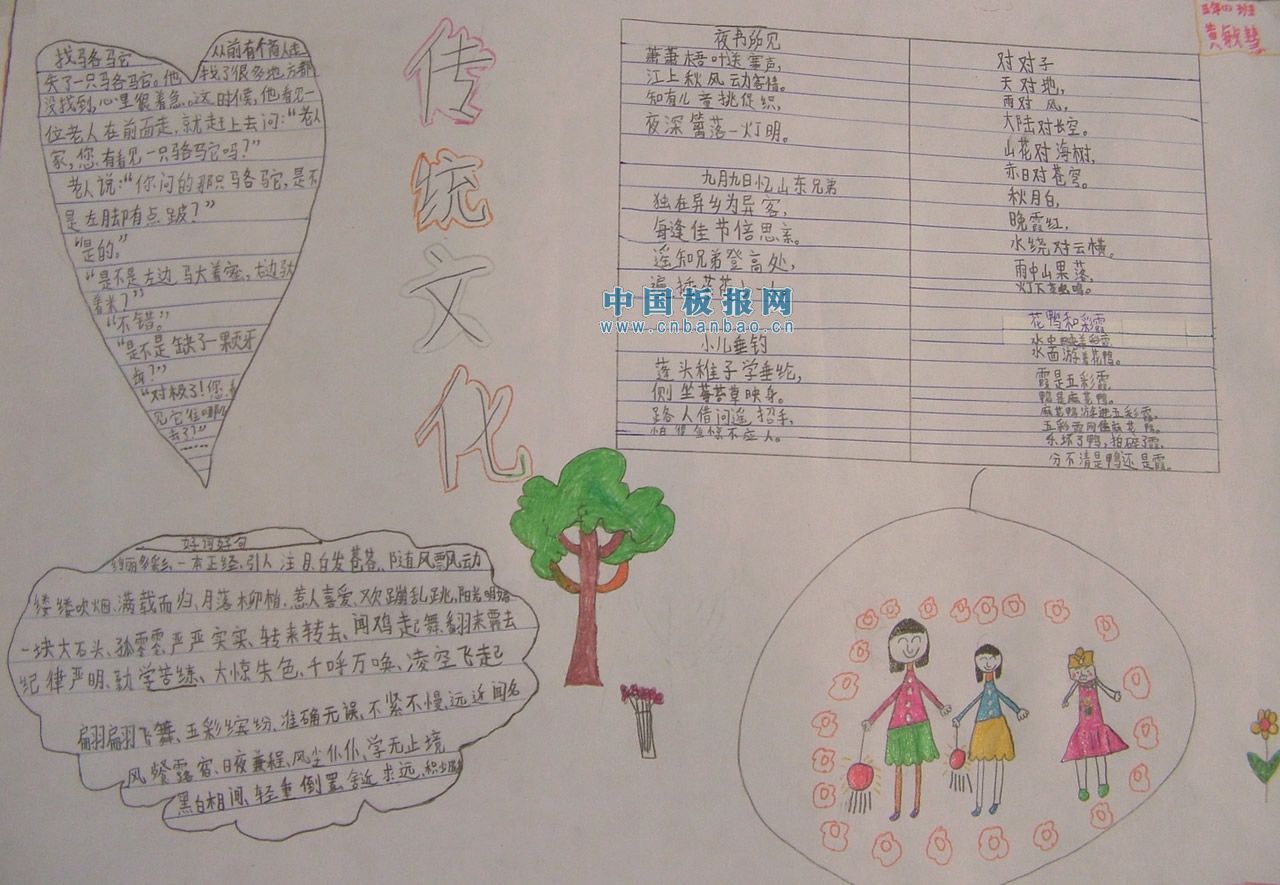 找骆驼
从前有个商人走
失了一只骆驼。他
找了很多地方都
没找到,心里很着急。这时候,他看见一
位老人在前面走,就赶上去问:“老人
家,您有看见一只骆驼吗?”
老人说:“你问的那只骆驼,是不
是左脚有点跛?”
“是的。”
“是不是左边驮着蜜,右边驮
着米?”
“不错。”
“是不是缺了一颗牙
齿?”
“对极了!您
见它往哪
去了?”
传统文化
夜书所见
萧萧梧叶送寒声,
江上秋风动客情。
知有儿童挑促织,
夜深篱落一灯明。
九月九日忆山东兄弟
独在异乡为异客,
每逢佳节倍思亲。
遥知兄弟登高处,
遍插
小儿垂钓
蓬头稚子学垂纶,
侧坐莓苔草映身。
路人借问遥招手,
怕得鱼惊不应人。
对对子
天对地,
雨对风,
大陆对长空。
山花对海树,
赤日对苍穹。
秋月白,
晚霞红,
水绕对云横。
雨中山果落,
灯下草虫鸣。
花鸭和彩霞
水中映着彩霞,
水面游着花鸭。
霞是五彩霞,
鸭是麻花鸭。
麻花鸭游进五彩霞,
五彩霞网住麻花鸭。
乐坏了鸭,拍碎了霞,
分不清是鸭还是霞。
三年四班
黄敏慧
中国板报网
www.cnbanbao.cn
好词好句
绚丽多彩、一本正经、引人注目、白发苍苍、随风飘动
缕缕炊烟、满载而归、月落柳梢、惹人喜爱、欢蹦乱跳、阳光明媚
一块大石头、孤零零、严严实实、转来转去、闻鸡起舞、翻来覆去
纪律严明、勤学苦练、大惊失色、千呼万唤、凌空飞起
翩翩飞舞、五彩缤纷、准确无误、不紧不慢、远近闻名
风餐露宿、日夜兼程、风尘仆仆、学无止境
黑白相间、轻重倒置、舍近求远、积少成